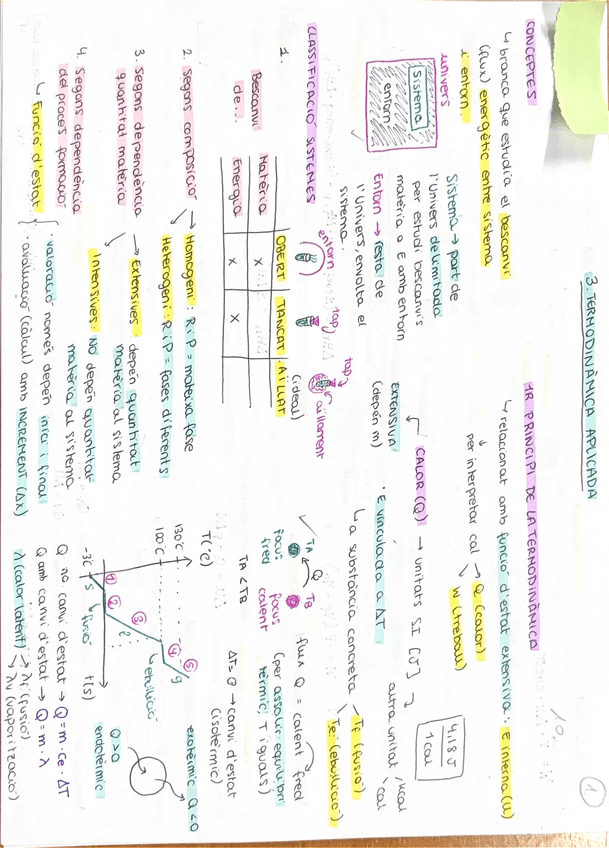 3. TERMODINÀMICA APLICADA
1
CONCEPTES
↳ branca que estudia el bescanvi
(flux) energètic entre sistema
i entorn.
univers
Sistema
entorn
Sistema → part de
l'Univers delimitada
per estudi bescanvis
matèria o E amb entorn
Entorn → resta de
l'Univers, envolta el
sistema.
CLASSIFICACIÓ SISTEMES
1.
entorn
tap
tap
aïllament
(ideal)
OBERT TANCAT AÏLLAT
Bescanvi
de...
Matèria x
Energia x x
2. Segons composició → Homogeni: R i P = mateixa fase
Heterogeni: R i P = fases diferents
3. Segons dependència
quantitat matèria
→ Extensives: depèn quantitat
matèria al sistema
Intensives: NO depèn quantitat
matèria al sistema
4. Segons dependència
del procés formador
↳ Funció d'estat
· valoració només depèn inici i final
· avaluació (càlcul) amb INCREMENT (Δx)
1R PRINCIPI DE LA TERMODINÀMICA
↳ relacionat amb funció d'estat extensiva: E interna (U)
per interpretar cal → Q (calor)
W (treball)
CALOR (Q) → unitats SI [J]
EXTENSIVA
(depèn m)
altra unitat kcal
cal
4,18 J
1 cal
· E vinculada a ΔT
↳ a substància concreta
Tf (fusió)
Te (ebullició)
TA Q TB
focus
fred
focus
calent
TA < TB
flux Q = calent fred
(per assolir equilibri
tèrmic, T iguals)
ΔT = 0 → canvi d'estat
(isotèrmic)
T(ºC)
130ºC
100ºC
-3ºC
t(s)
1 2 3 4 5
s
fusió
l
ebullició
g
exotèrmic Q<0
Q>0
endotèrmic
Q no canvi d'estat → Q = m · ce · ΔT
Q amb canvi d'estat → Q = m · λ
λ (calor latent) → λf (fusió)
λv (vaporització)